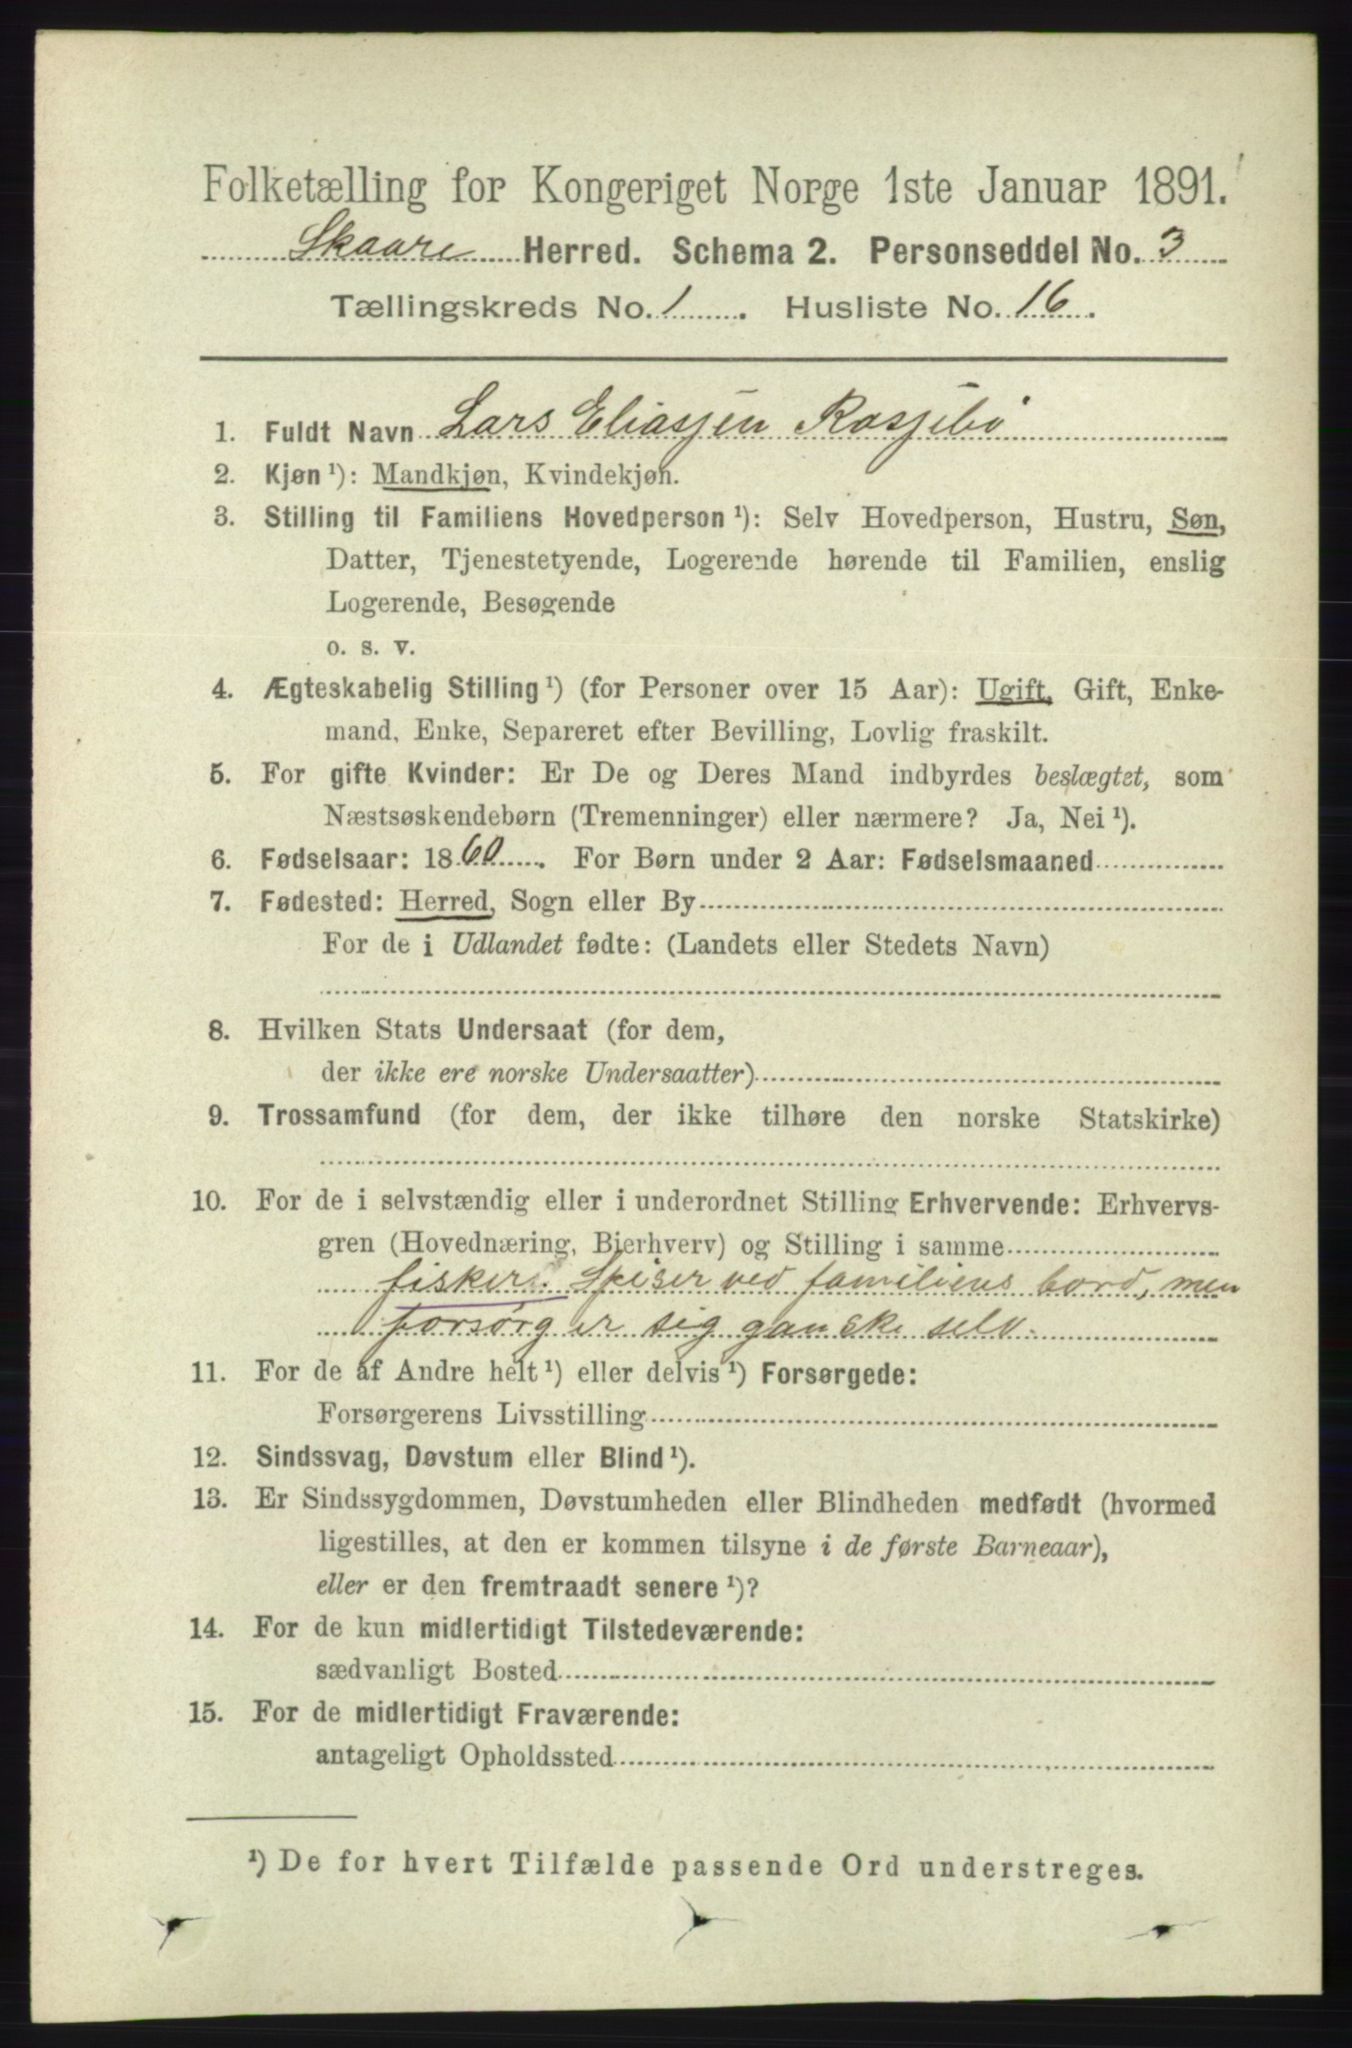 Folketælling for Kongeriget Norge 1ste Januar 1891.
Skaare Herred. Schema 2. Personseddel No. 3
Tællingskreds No. 1. Husliste No. 16.
1. Fuldt Navn Lars Eliassen Rossebø
2. Kjøn ¹): Mandkjøn, Kvindekjøn.
3. Stilling til Familiens Hovedperson ¹): Selv Hovedperson, Hustru, Søn,
Datter, Tjenestetyende, Logerende hørende til Familien, enslig
Logerende, Besøgende
o. s. v.
4. Ægteskabelig Stilling ¹) (for Personer over 15 Aar): Ugift, Gift, Enke-
mand, Enke, Separeret efter Bevilling, Lovlig fraskilt.
5. For gifte Kvinder: Er De og Deres Mand indbyrdes beslægtet, som
Næstsøskendebørn (Tremenninger) eller nærmere? Ja, Nei ¹).
6. Fødselsaar: 1860. For Børn under 2 Aar: Fødselsmaaned
7. Fødested: Herred, Sogn eller By
For de i Udlandet fødte: (Landets eller Stedets Navn)
8. Hvilken Stats Undersaat (for dem,
der ikke ere norske Undersaatter)
9. Trossamfund (for dem, der ikke tilhøre den norske Statskirke)
10. For de i selvstændig eller i underordnet Stilling Erhvervende: Erhvervs-
gren (Hovednæring, Bierhverv) og Stilling i samme
fisker. Spiser ved familiens bord, men
forsørger sig ganske selv.
11. For de af Andre helt ¹) eller delvis ¹) Forsørgede:
Forsørgerens Livsstilling
12. Sindssvag, Døvstum eller Blind ¹).
13. Er Sindssygdommen, Døvstumheden eller Blindheden medfødt (hvormed
ligestilles, at den er kommen tilsyne i de første Barneaar),
eller er den fremtraadt senere ¹)?
14. For de kun midlertidigt Tilstedeværende:
sædvanligt Bosted
15. For de midlertidigt Fraværende:
antageligt Opholdssted
¹) De for hvert Tilfælde passende Ord understreges.